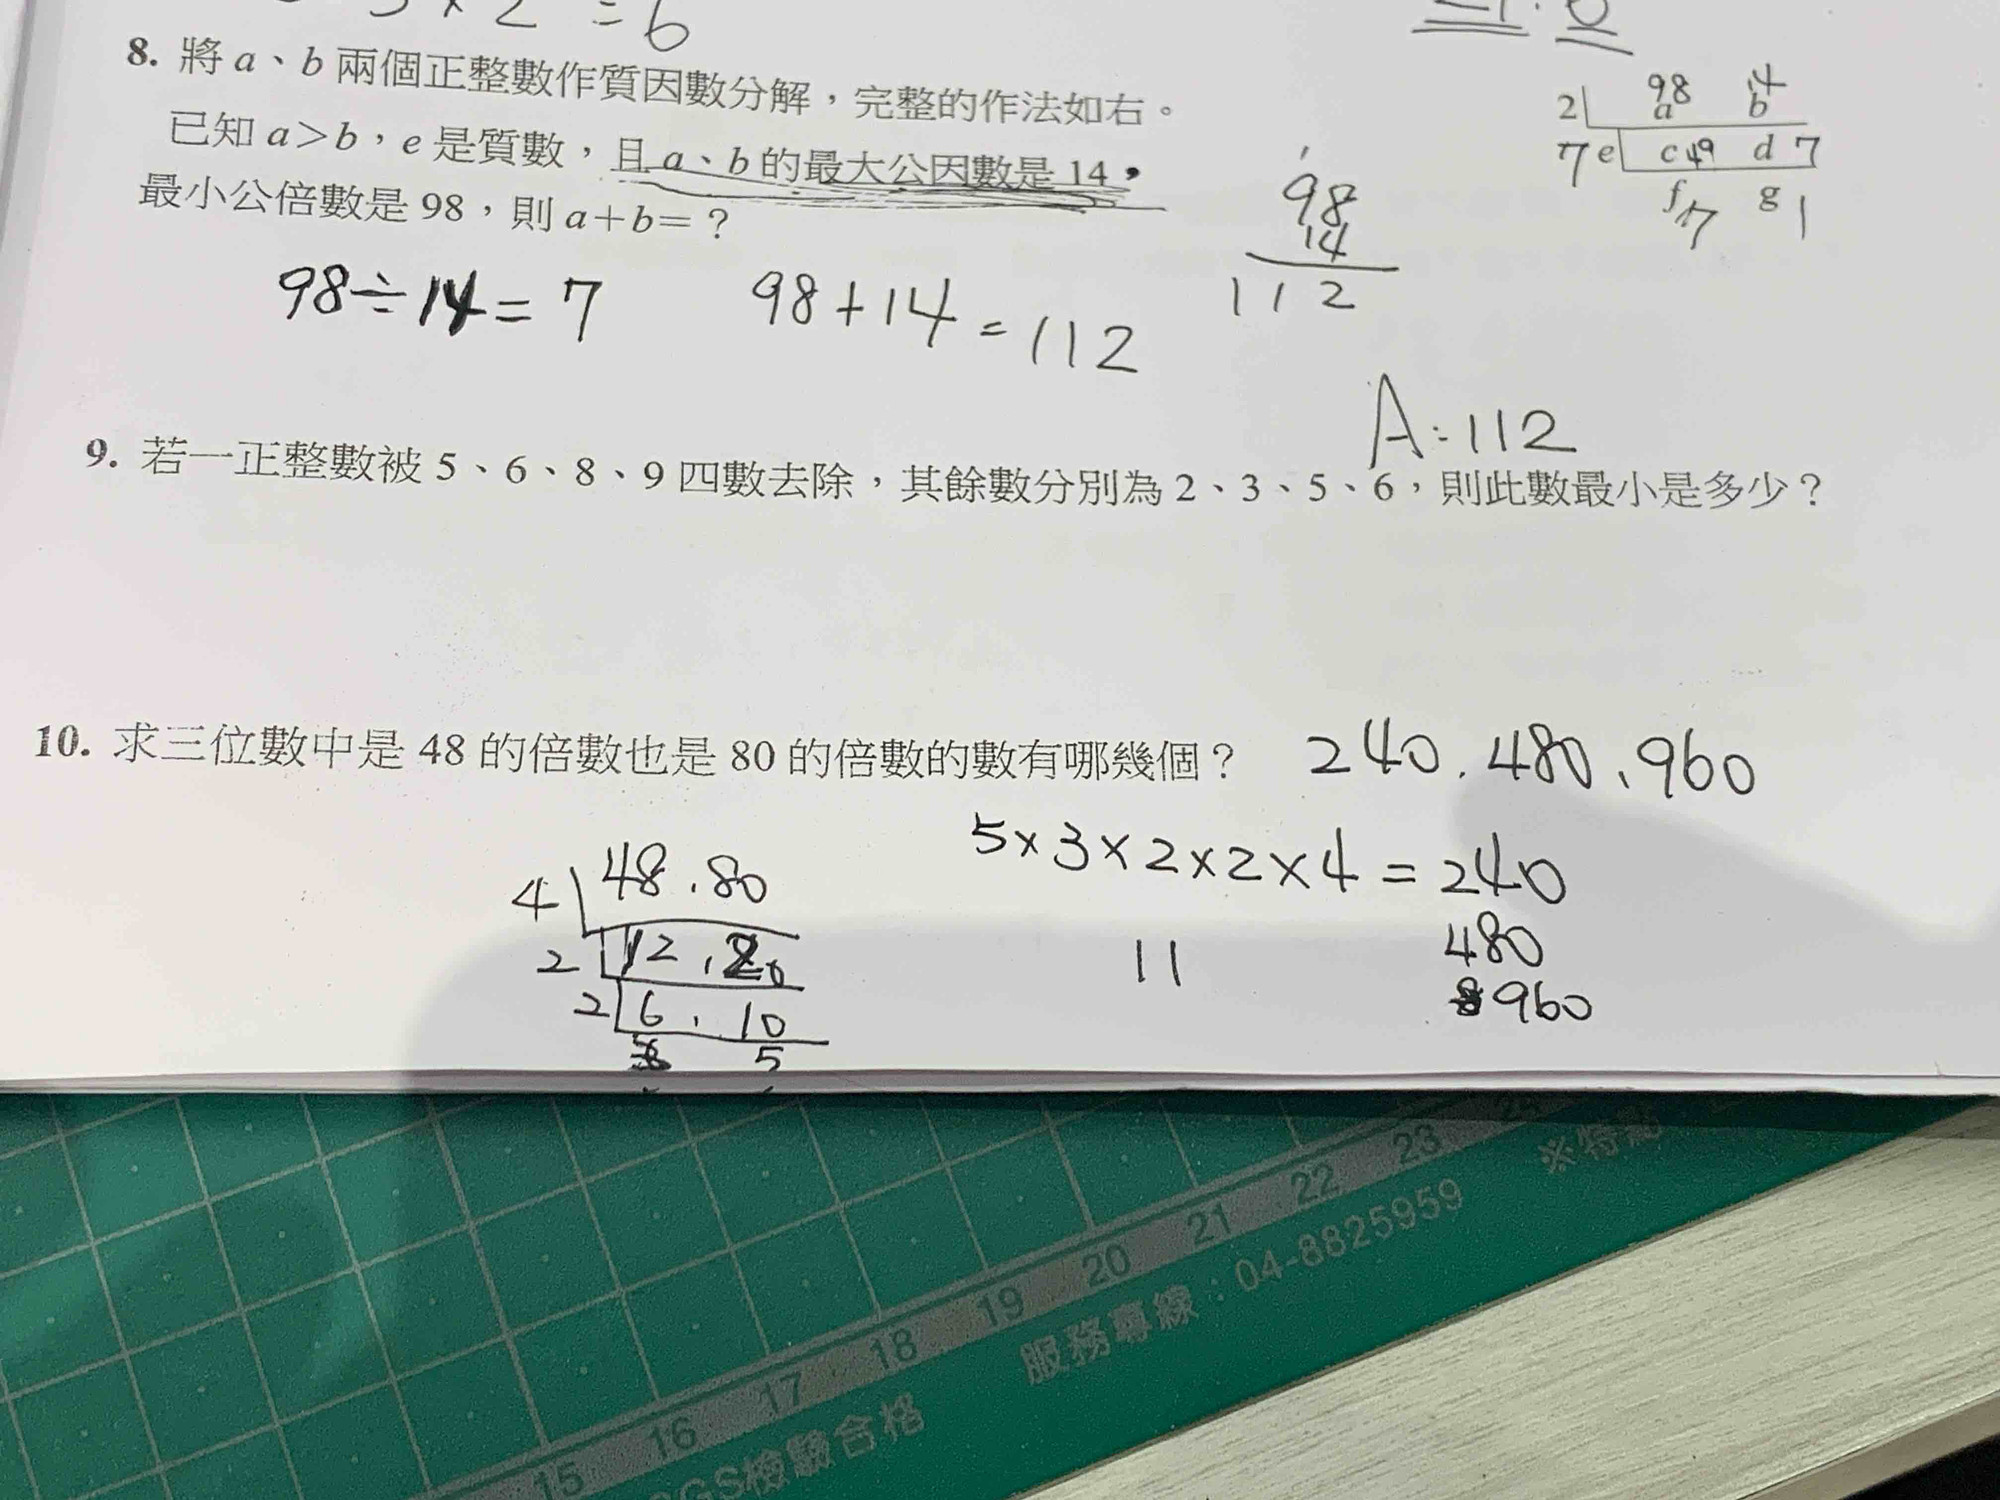 3×2=6
8. 將 a、b 兩個正整數作質因數分解，完整的作法如右。
已知 a＞b，e 是質數，且 a、b 的最大公因數是 14，
最小公倍數是 98，則 a＋b＝？
98 14
2 a b
7 e c 49 d 7
f 7 g 1
1
98
14
112
98÷14=7 98+14=112
A:112
9. 若一正整數被 5、6、8、9 四數去除，其餘數分別為 2、3、5、6，則此數最小是多少？
10. 求三位數中是 48 的倍數也是 80 的倍數的數有哪幾個？ 240、480、960
5×3×2×2×4=240
480
960
11
4 48、80
2 12、20
2 6、10
5
15 16 17 18 19 20 21 22 23 24
服務專線：04-8825959
SGS檢驗合格